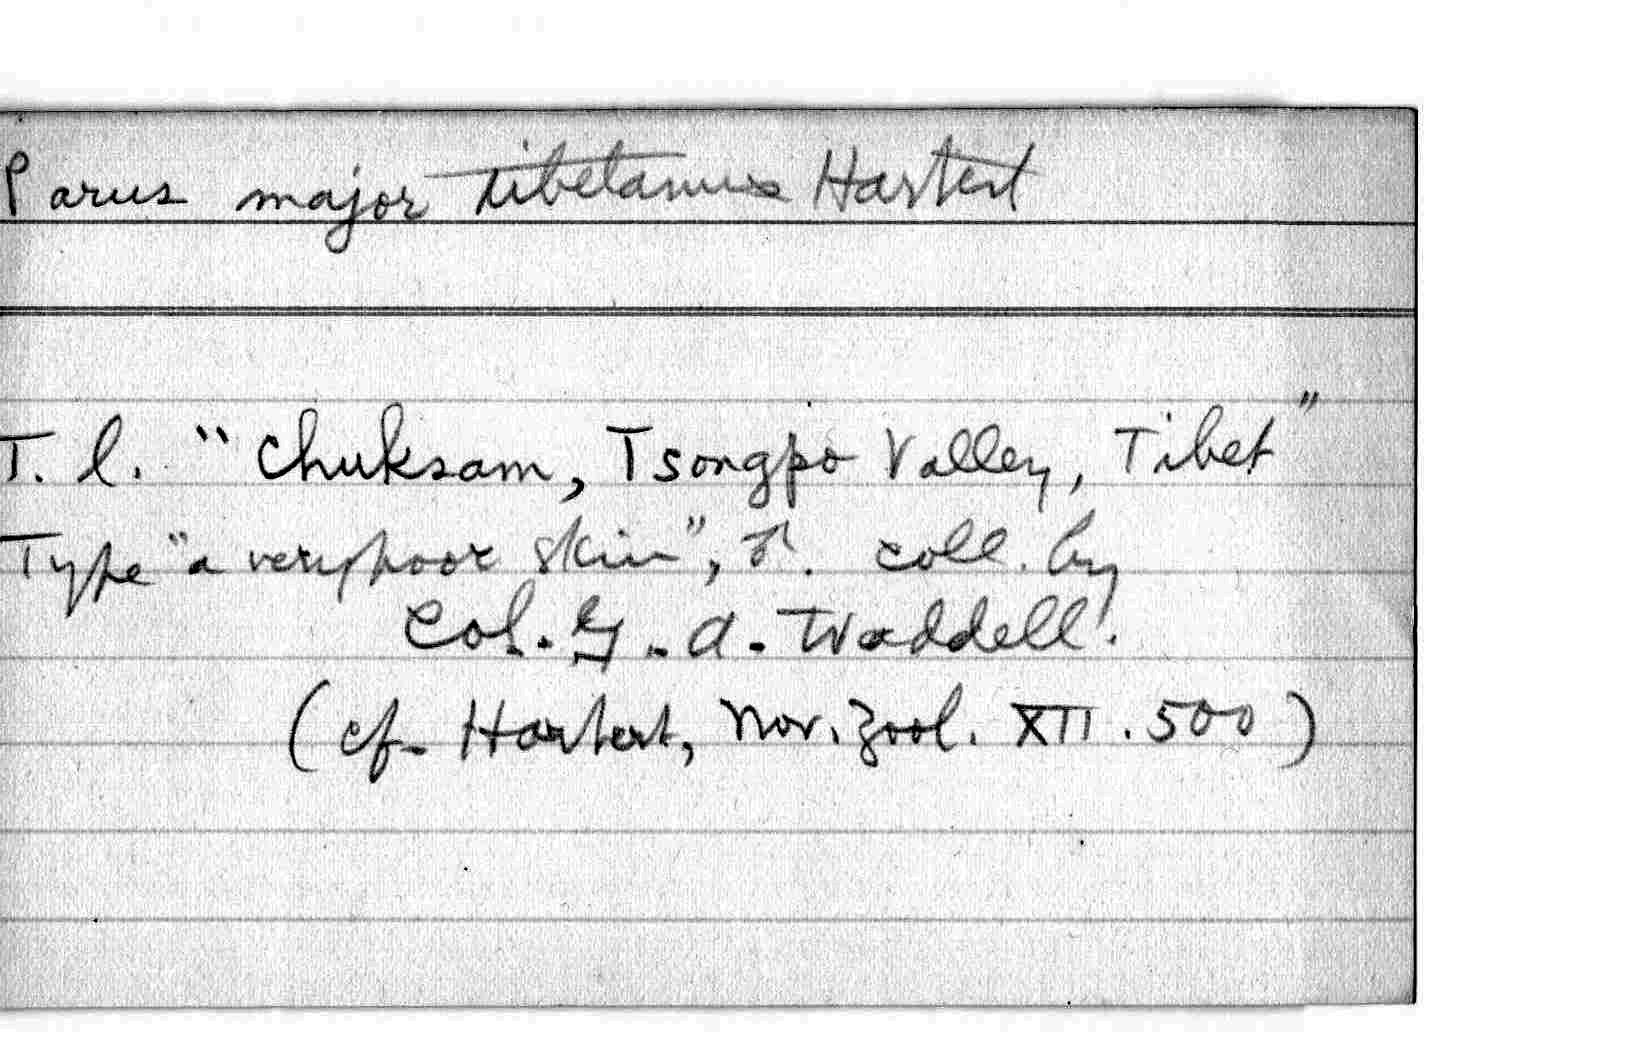 Parus major tibetanus Hartert
T. l. "Chuksam, Tsongpo Valley, Tibet"
Type "a very poor skin", ♂. coll. by
Col. G. A. Waddell.
(cf. Hartert, Nov. Zool. XII. 500)